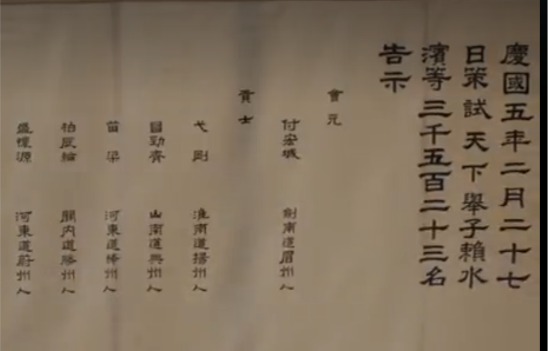 慶國五年二月二十七
日策試天下舉子賴水
濱等三千五百二十三名
告示
會元
付宏城 劍南道眉州人
貢士
弋剛 淮南道揚州人
昌勁齊 山南道興州人
苗梁 河東道絳州人
柏成綸 關內道勝州人
盛懷源 河東道蔚州人